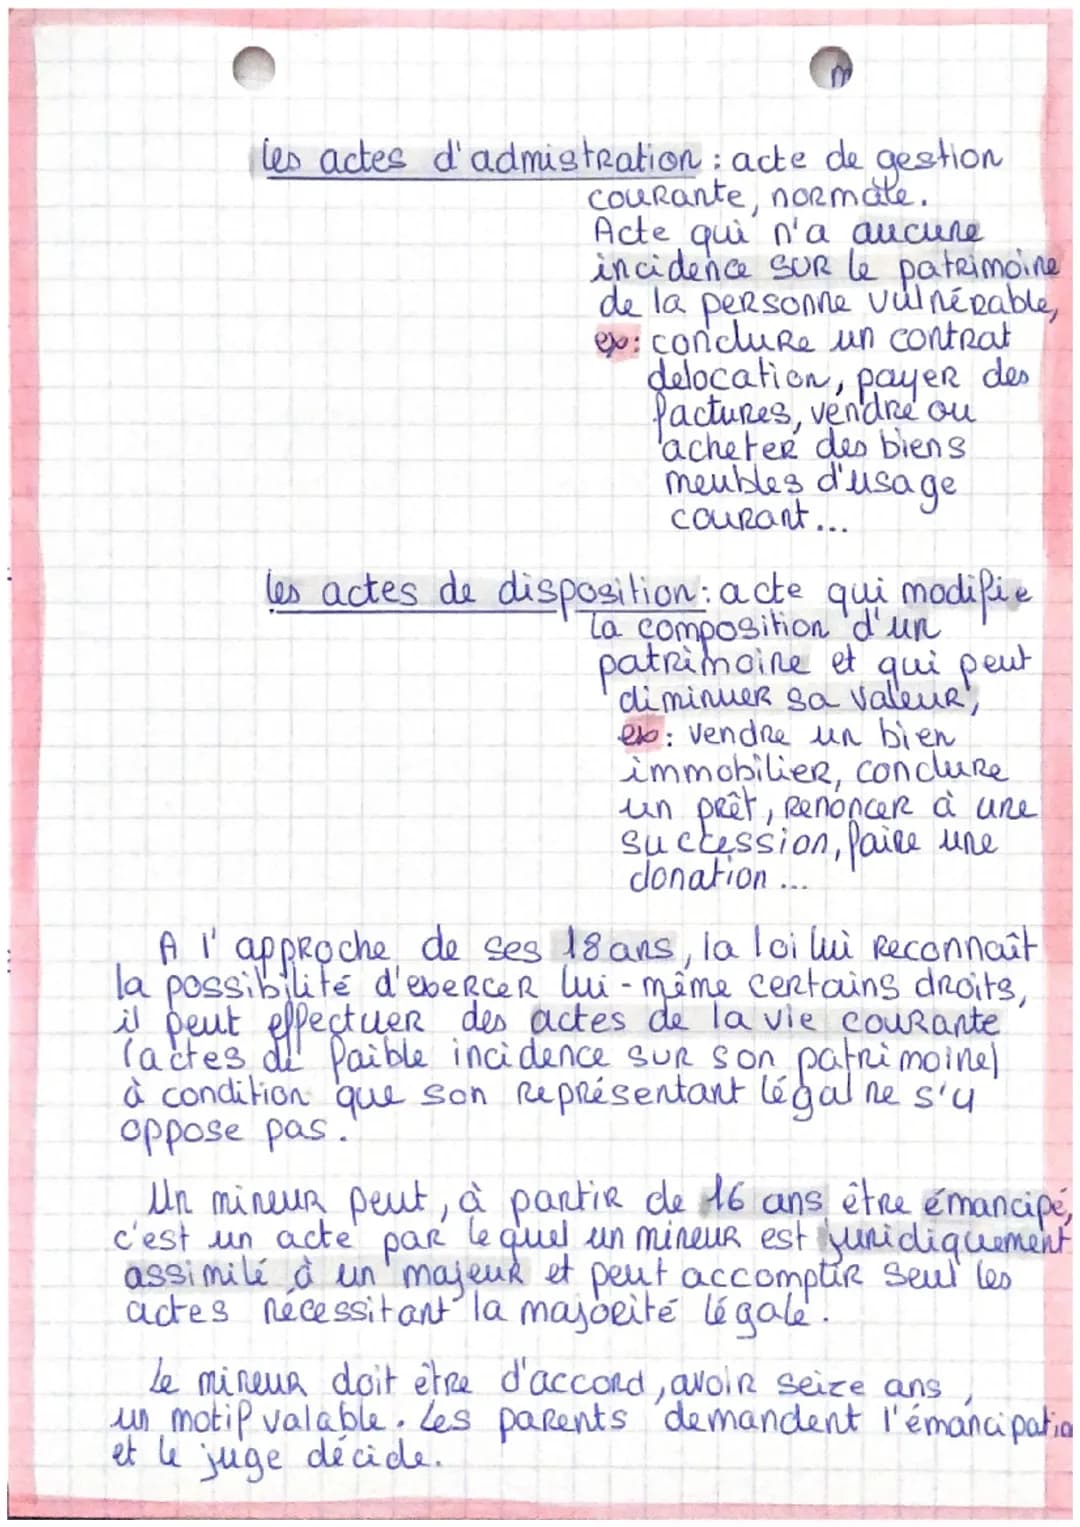 les actes d'admistration : acte de gestion
courante, normale.
Acte qui n'a aucune
incidence sur le patrimoine
de la personne vulnérable,
ex: conclure un contrat
delocation, payer des
factures, vendre ou
acheter des biens
meubles d'usage
courant...
les actes de disposition : acte qui modifie
la composition d'un
patrimoine et qui peut
diminuer sa valeur,
ex : vendre un bien
immobilier, conclure
un prêt, renoncer à une
succession, faire une
donation ...
A l'approche de ses 18 ans, la loi lui reconnaît
la possibilité d'exercer lui-même certains droits,
il peut effectuer des actes de la vie courante
(actes de faible incidence sur son patrimoine)
à condition que son représentant légal ne s'y
oppose pas.
Un mineur peut, à partir de 16 ans être émancipé,
c'est un acte par lequel un mineur est juridiquement
assimilé à un majeur et peut accomplir seul les
actes nécessitant la majorité légale.
Le mineur doit être d'accord, avoir seize ans,
un motif valable. Les parents demandent l'émancipatio
et le juge décide.